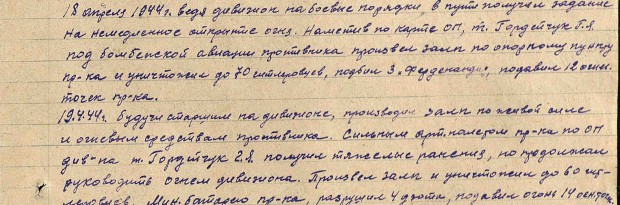 18 апреля 1944 г. ведя дивизион на боевые порядки в пути получил задание
на немедленное открытие огня. Наметив по карте ОП, т. Гордейчук Г.Я.
под бомбежкой авиации противника произвел залп по опорному пункту
пр-ка и уничтожил до 70 гитлеровцев, подбил 3 "Ферденанда", подавил 12 огнев.
точек пр-ка.
19.4.44г. будучи старшим на дивизионе, производил залп по живой силе
и огневым средствам противника. Сильным арт. налетом пр-ка по ОП
див-на т. Гордейчук Г.Я. получил тяжелые ранения, но продолжал
руководить огнем дивизиона. Произвел залп и уничтожил до 60 гит-
леровцев, мин. батарею пр-ка, разрушил 4 дзота, подавил огонь 14 огн. точек